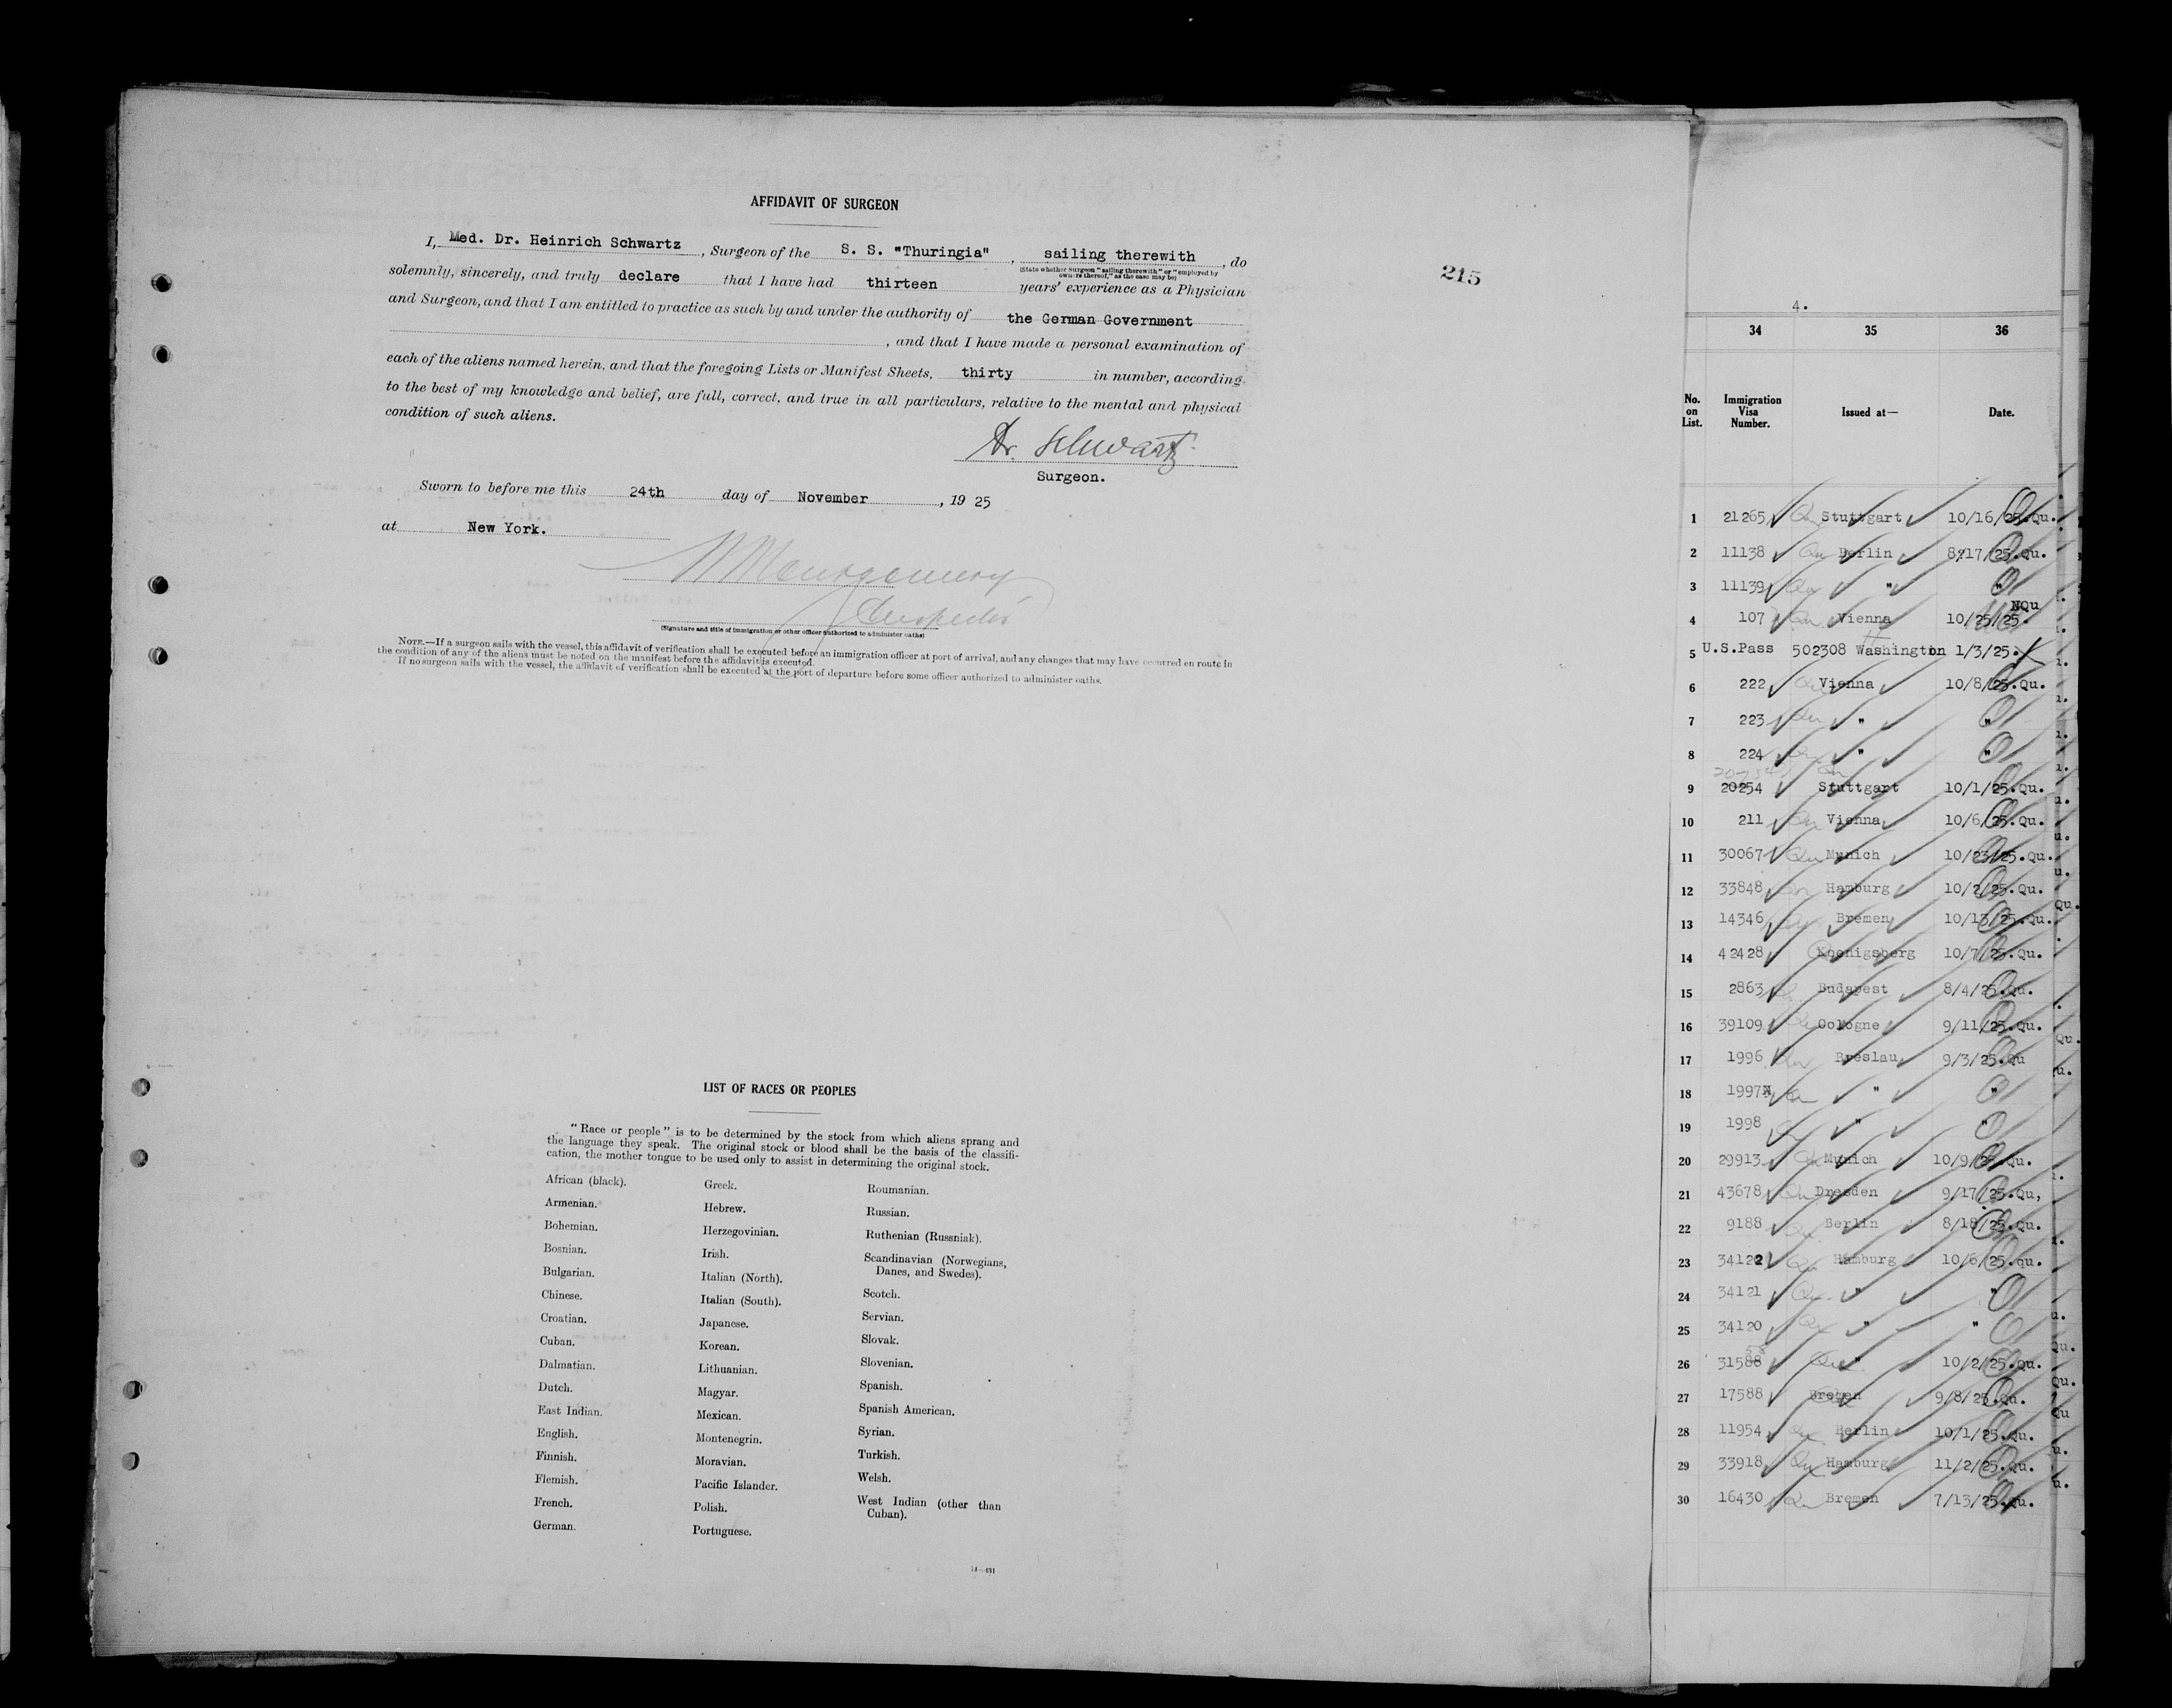 AFFIDAVIT OF SURGEON
I, Med. Dr. Heinrich Schwartz, Surgeon of the S. S. "Thuringia", sailing therewith, do
(State whether Surgeon "sailing therewith" or "employed by owners thereof," as the case may be)
solemnly, sincerely, and truly declare that I have had thirteen years' experience as a Physician
and Surgeon, and that I am entitled to practice as such by and under the authority of the German Government
, and that I have made a personal examination of
each of the aliens named herein, and that the foregoing Lists or Manifest Sheets, thirty in number, according
to the best of my knowledge and belief, are full, correct, and true in all particulars, relative to the mental and physical
condition of such aliens.
Dr. Schwartz
Surgeon.
Sworn to before me this 24th day of November, 19 25
at New York.
Montgomery
Inspector
(Signature and title of immigration or other officer authorized to administer oaths)
NOTE.—If a surgeon sails with the vessel, this affidavit of verification shall be executed before an immigration officer at port of arrival, and any changes that may have occurred en route in
the condition of any of the aliens must be noted on the manifest before the affidavit is executed.
If no surgeon sails with the vessel, the affidavit of verification shall be executed at the port of departure before some officer authorized to administer oaths.
215
LIST OF RACES OR PEOPLES
"Race or people" is to be determined by the stock from which aliens sprang and
the language they speak. The original stock or blood shall be the basis of the classifi-
cation, the mother tongue to be used only to assist in determining the original stock.
African (black).
Armenian.
Bohemian.
Bosnian.
Bulgarian.
Chinese.
Croatian.
Cuban.
Dalmatian.
Dutch.
East Indian.
English.
Finnish.
Flemish.
French.
German.
Greek.
Hebrew.
Herzegovinian.
Irish.
Italian (North).
Italian (South).
Japanese.
Korean.
Lithuanian.
Magyar.
Mexican.
Montenegrin.
Moravian.
Pacific Islander.
Polish.
Portuguese.
Roumanian.
Russian.
Ruthenian (Russniak).
Scandinavian (Norwegians,
Danes, and Swedes).
Scotch.
Servian.
Slovak.
Slovenian.
Spanish.
Spanish American.
Syrian.
Turkish.
Welsh.
West Indian (other than
Cuban).
4.
34 35 36
No. on List. Immigration Visa Number. Issued at— Date.
1 21265 Qu Stuttgart 10/16/25.Qu.
2 11138 Qu Berlin 8/17/25.Qu.
3 11139 Qu " "
4 107 Qu Vienna 10/25/25. NQu
5 U.S.Pass 502308 Washington 1/3/25.
6 222 Qu Vienna 10/8/25.Qu.
7 223 Qu " "
8 224 Qu " "
9 20254 Stuttgart 10/1/25.Qu.
10 211 Qu Vienna 10/6/25.Qu.
11 30067 Qu Munich 10/23/25.Qu.
12 33848 Qu Hamburg 10/2/25.Qu.
13 14346 Qu Bremen 10/13/25.Qu.
14 42428 Koenigsberg 10/7/25.Qu.
15 2863 Qu Budapest 8/4/25.Qu.
16 39109 Qu Cologne 9/11/25.Qu.
17 1996 Qu Breslau 9/3/25.Qu
18 1997 Qu " "
19 1998 Qu " "
20 29913 Qu Munich 10/9/25.Qu.
21 43678 Qu Dresden 9/17/25.Qu,
22 9188 Qu Berlin 8/18/25.Qu.
23 34122 Qu Hamburg 10/6/25.qu.
24 34121 Qu " "
25 34120 Qu " "
26 31588 Qu " 10/2/25.Qu.
27 17588 Bremen 9/8/25.Qu.
28 11954 Qu Berlin 10/1/25.Qu.
29 33918 Qu Hamburg 11/2/25.Qu.
30 16430 Qu Bremen 7/13/25.Qu.